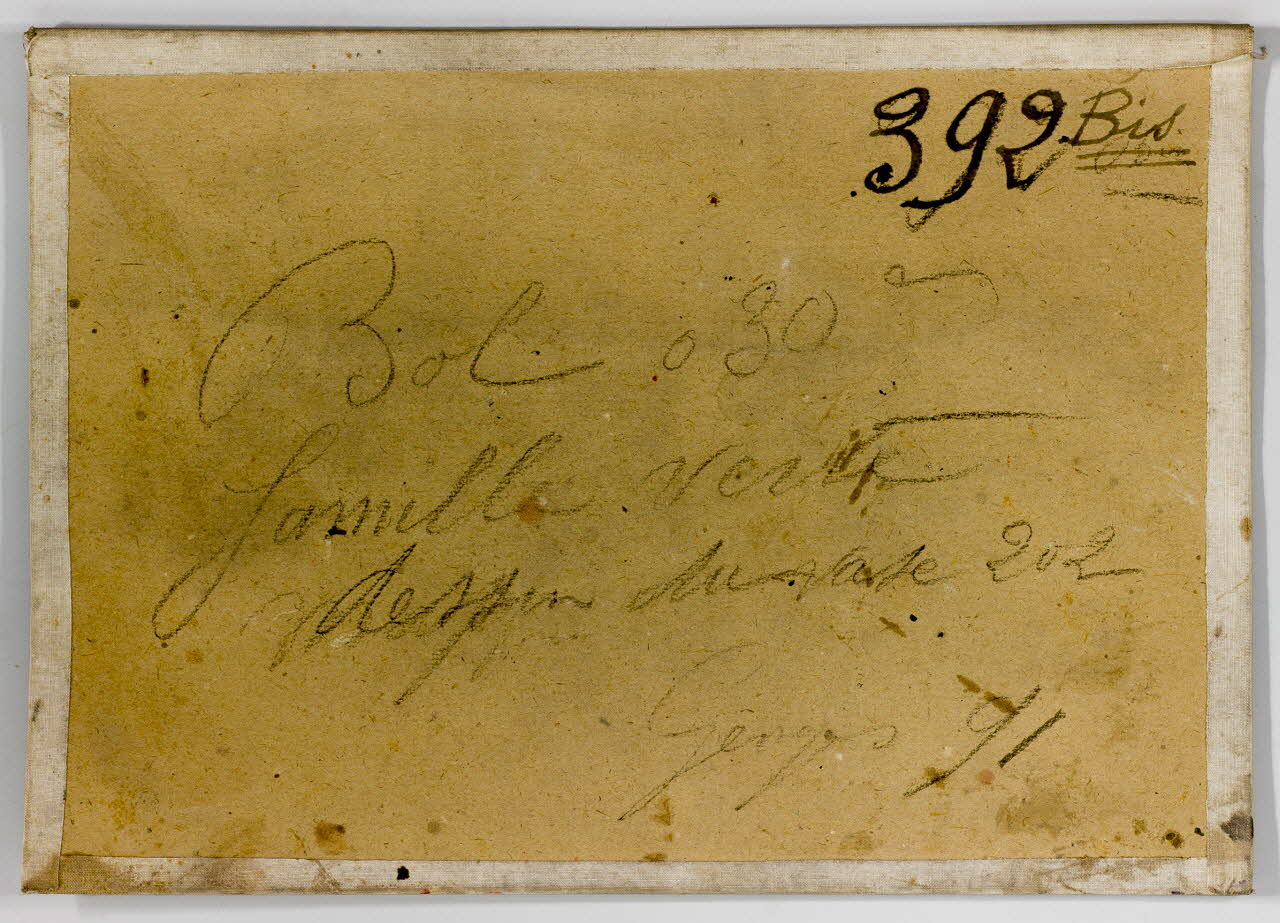 392 Bis.
Bol 0 30
famille verte
dessin du vase 202
91